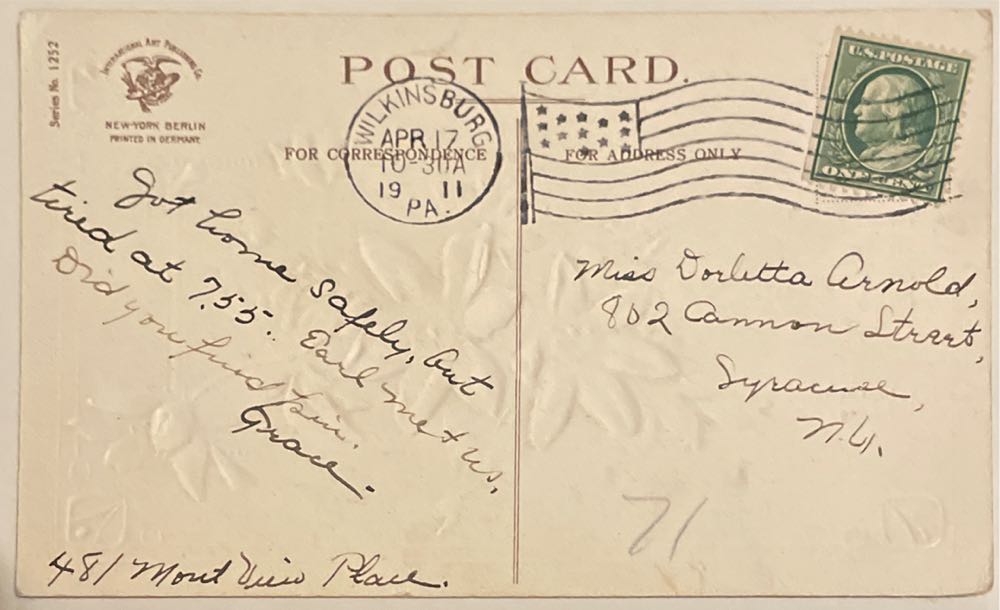 Series No. 1252
INTERNATIONAL ART PUBLISHING Co.
NEW-YORK BERLIN
PRINTED IN GERMANY
POST CARD.
FOR CORRESPONDENCE
FOR ADDRESS ONLY
WILKINSBURG
APR 17
10-30A
19 11
PA.
U.S. POSTAGE
ONE CENT
Got home safely, but
tired at 7.55. Earl met us.
Did you find pin.
Grace.
481 Mont View Place.
Miss Dorletta Arnold,
802 Cannon Street,
Syracuse,
N.Y.
71